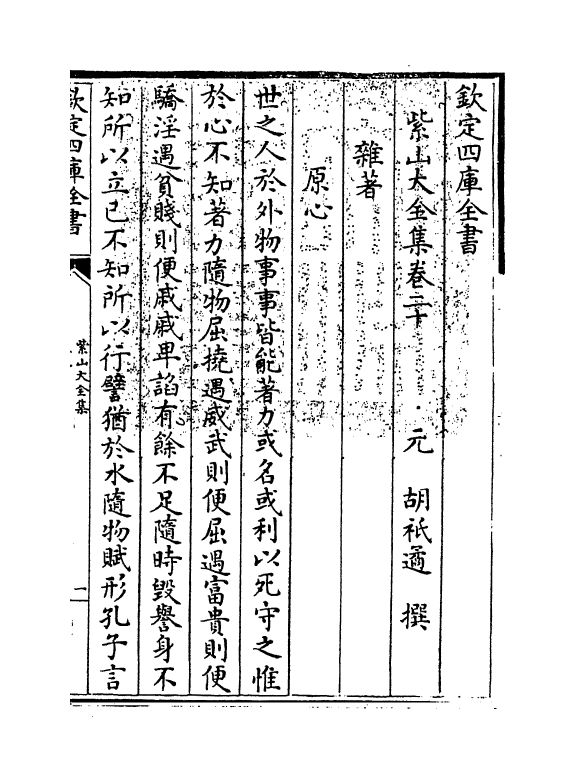 欽定四庫全書
紫山大全集卷二十 元 胡祗遹 撰
雜著
原心
世之人於外物事事皆能著力或名或利以死守之惟
於心不知著力隨物屈撓遇威武則便屈遇富貴則便
驕淫遇貧賤則便戚戚卑諂有餘不足隨時毀譽身不
知所以立已不知所以行譬猶於水隨物賦形孔子言
欽定四庫全書
紫山大全集